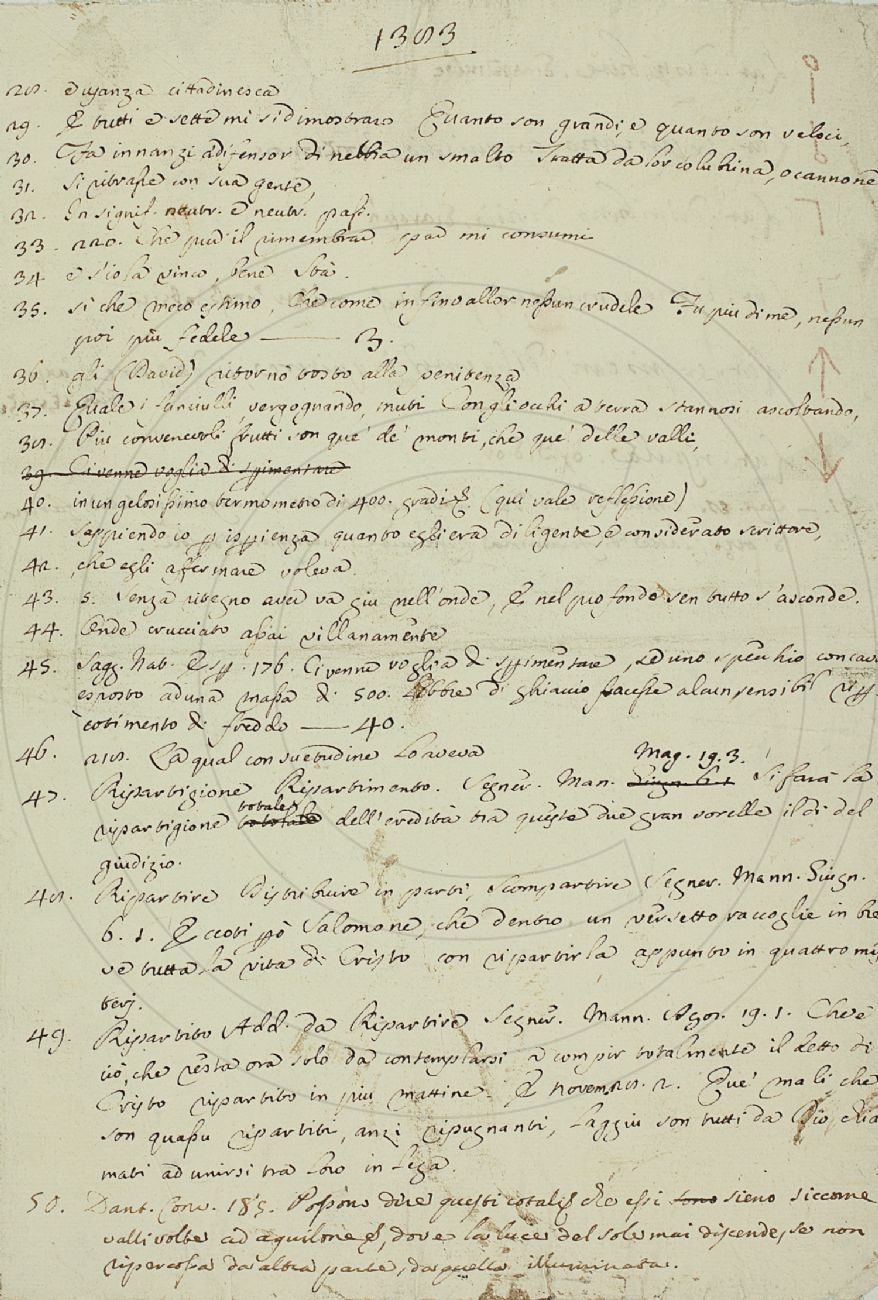 1383
28. e usanza cittadinesca
29. E tutti e sette mi si dimostraro Quanto son grandi, e quanto son veloci,
30. Fa innanzi a difensor di nebbia un smalto Tratta da lor colubrina, o cannone
31. Si ritrasse con sua gente,
32. In signif. neutr. e neutr. pass.
33. 220. Che pur il rimembrar par mi consumi
34 e s'io la vinco, bene sta.
35. si che meco estimo, Che come infino allor nessun crudele Fu piu di me, nessun
poi più fedele —— 3.
36. gli (David) ritornò tosto alla penitenza
37. Quale i fanciulli vergognando, muti Con gli occhi a terra stannosi ascoltando,
38. Piu convenevoli frutti son que' de' monti, che que' delle valli,
39. Ci venne voglia di sperimentare
40. in un gelosissimo termometro di 400. gradi &. (qui vale reflessione)
41. sappiendo io p isperienza quanto egli era diligente, e considerato scrittore,
42. che egli affermare voleva
43. 5. Senza ritegno aver va giu nell'onde, E nel profondo sen tutto s'asconde.
44. Onde crucciato assai villanamente
45. Sagg. Nat. Esp. 176. Ci venne voglia di sperimentare, se uno specchio concavo
esposto ad una massa di 500. libbre di ghiaccio facesse alcun sensibil riper-
cotimento di freddo —— 40.
46. 218. La qual consuetudine lo aveva
Mag. 19. 3.
47. Ripartigione Ripartimento. Segner. Man. Giugn. 6. 1 Si farà la
totale
ripartigione tototale dell'eredità tra queste due gran sorelle il di del
giudizio.
48. Ripartire Distribuire in parti, scompartire Segner. Mann. Giugn.
6. 1. Eccoti però Salomone, che dentro un versetto raccoglie in bre
ve tutta la vita di Cristo con ripartirla appunto in quattro mis
terj.
49. Ripartito Add. da Ripartire Segner. Mann. Agos. 19. 1. Che è
ciò, che resta ora solo da contemplarsi a compir totalmente il detto di
Cristo ripartito in piu mattine. E Novem. 28. 2. Que' mali che
son quassu ripartiti, anzi ripugnanti, laggiu son tutti da Dio chia
mati ad unirsi tra loro in lega.
50. Dant. Conv. 185. Possono dire questi cotali & che essi sono sieno siccome
valli volte ad aquilone &, dove la luce del sole mai discende, se non
ripercossa da altra parte, da quella illuminata.